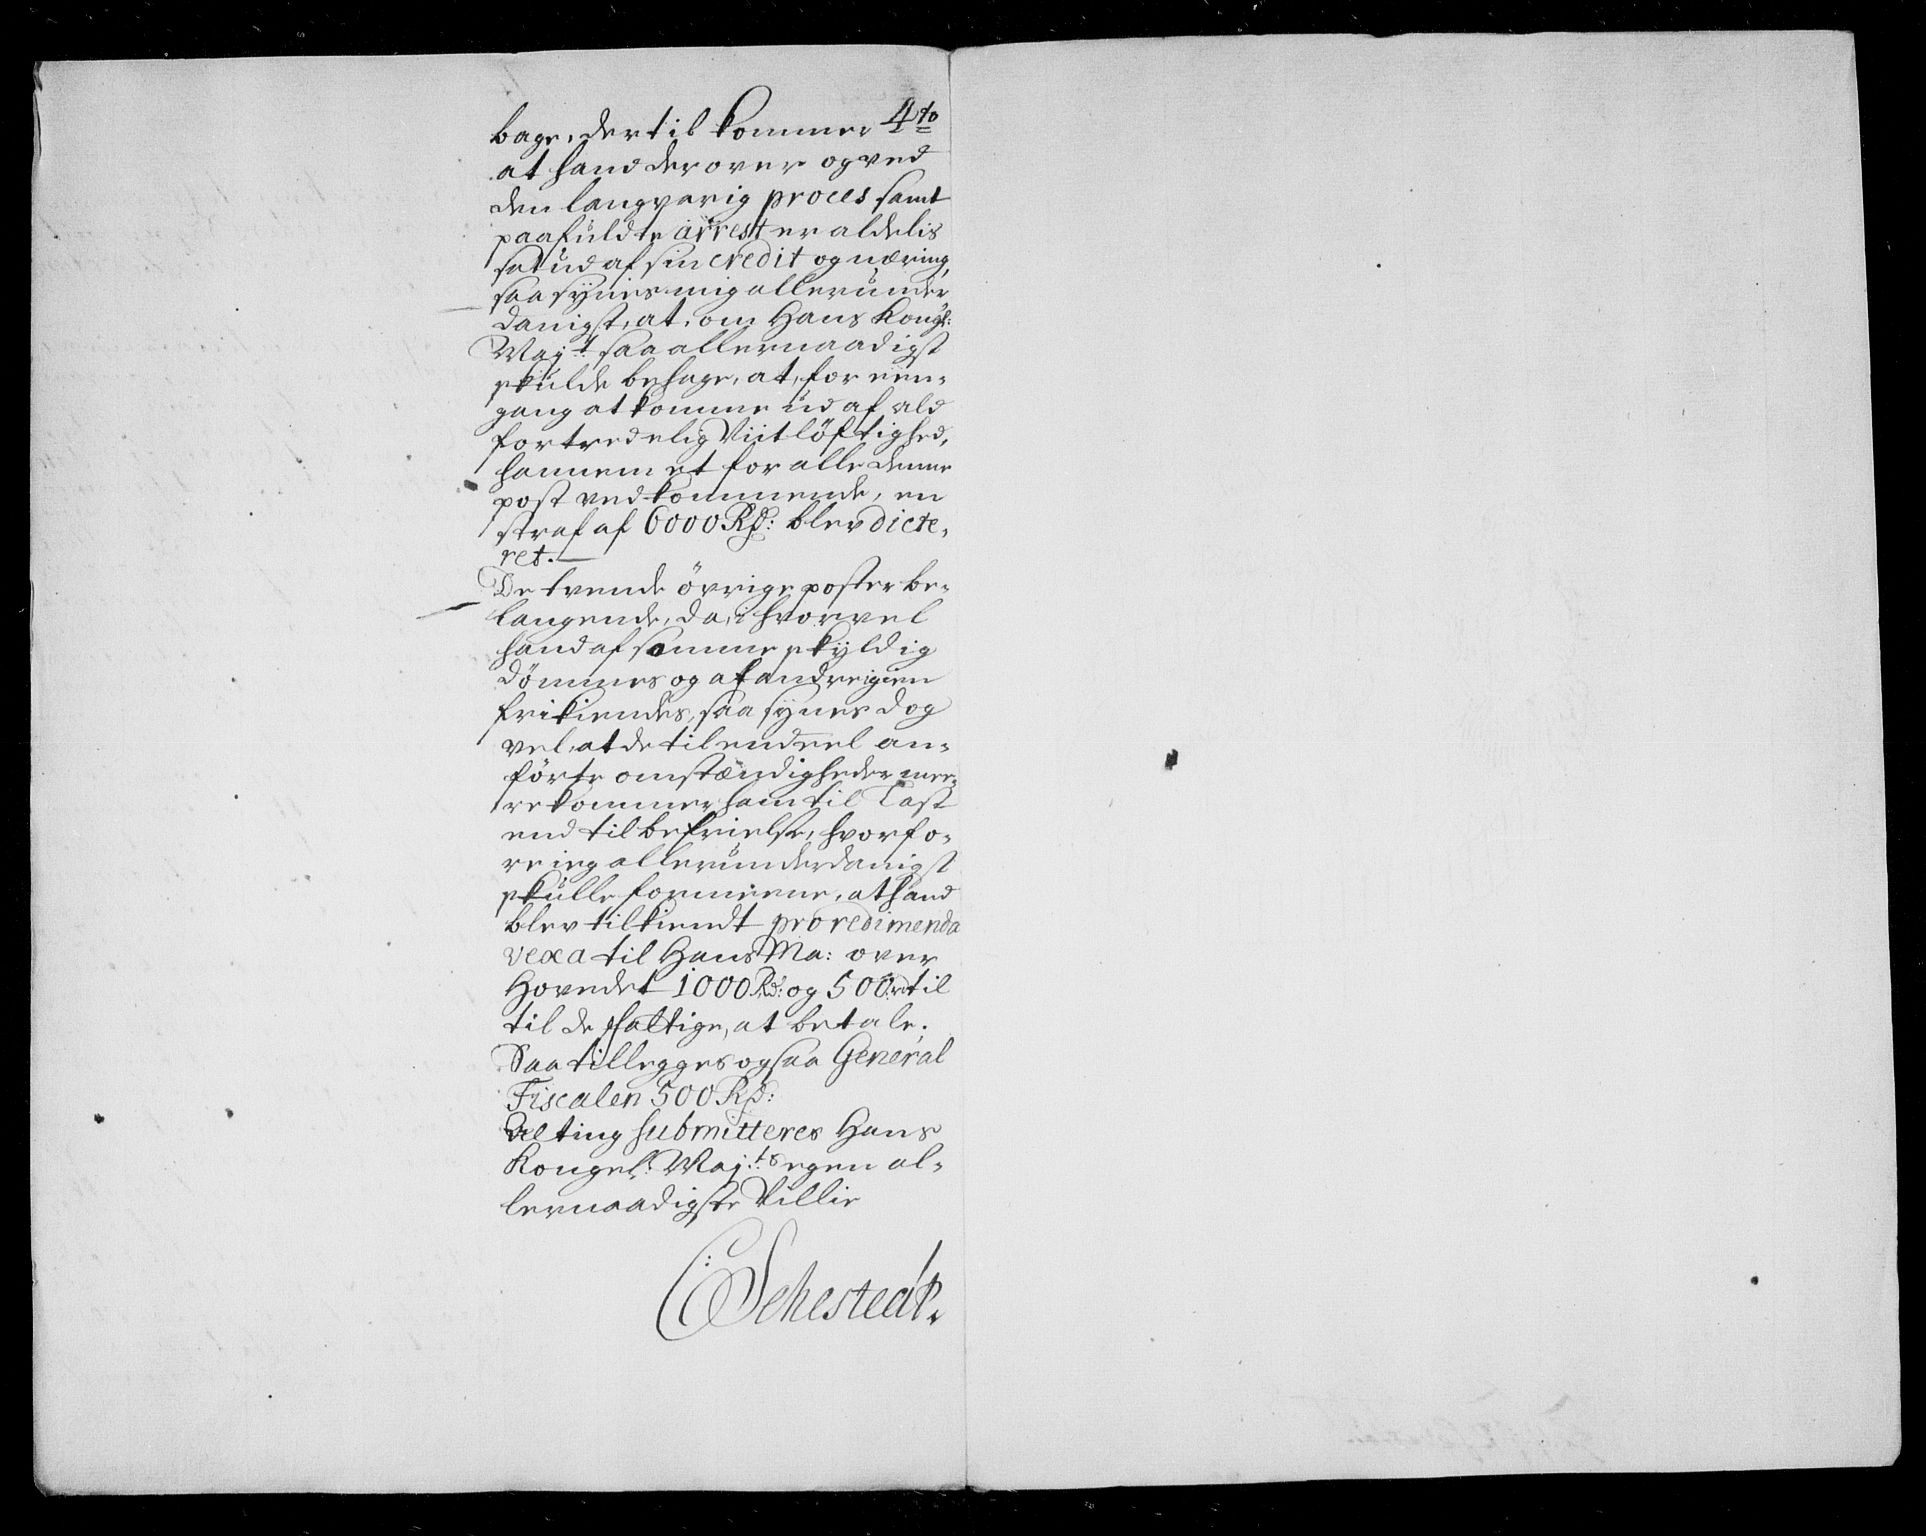 bage, dertil kommer 4to
at hand derover og ved
den langvarig proces samt
paafuldte arrest er aldelis
sat ud af sin credit og næring,
saa synes mig allerunder
danigst, at, om Hans Kongl:
Mayt: saa allernaadigst
skulde behage, at, for een-
gang at komme ud af ald
fortredelig Viitlöftighed,
hannem et for alle denne
post vedkommende, en
straf af 6000 Rd: blev dicte-
ret.
De tvende övrige poster be-
langende, da, i hvorvel
hand af somme skyldig
dömmes og af andre igien
frikiendes, saa synes dog
vel, at de til endeel an-
förte omstændigheder mee-
re kommer ham til Last
end til befrielse, hvorfo-
re ieg allerunderdanigst
skulle formeene, at hand
blev tilkiendt pro redimenda
vexa til Hans Ma: over
Hovedet 1000 Rd: og 500 rd til
til de fattige, at betale.
Saa tillegges ogsaa General
Fiscalen 500 Rd:
Alting submitteres Hans
Kongel: Maj:ts egen al-
lernaadigste Villie
C: Sehestedt.